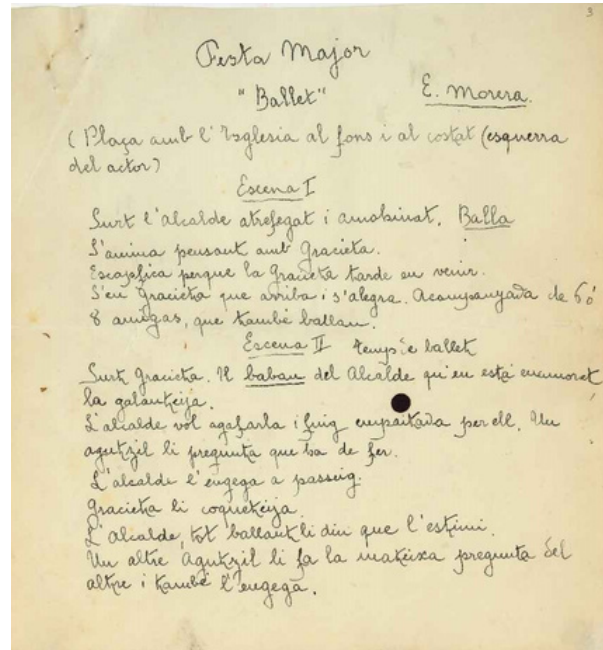 3
Festa Major
"Ballet"
E. Morera.
(Plaça amb l'Esglesia al fons i al costat (esquerra
del actor)
Escena I
Surt l'alcalde atrefegat i amohinat. Balla
S'anima pensant amb Gracieta.
perque la Gracieta tarde en venir.
S'en Gracieta que arriba i s'alegra. Acompanyada de 6 ó
8 amigas, que també ballan.
Escena II temps de ballet
Surt Gracieta. Il babau del Alcalde qu'en está enamorat
la galanteija.
L'alcalde vol agafarla i fuig empaitada per ell. Un
agutzil li pregunta que ba de fer.
L'alcalde l'engega a passeig.
Gracieta li coqueteija.
L'Alcalde, tot ballant li diu que l'estimi.
Un altre Agutzil li fa la mateixa pregunta del
altre i també l'engega.